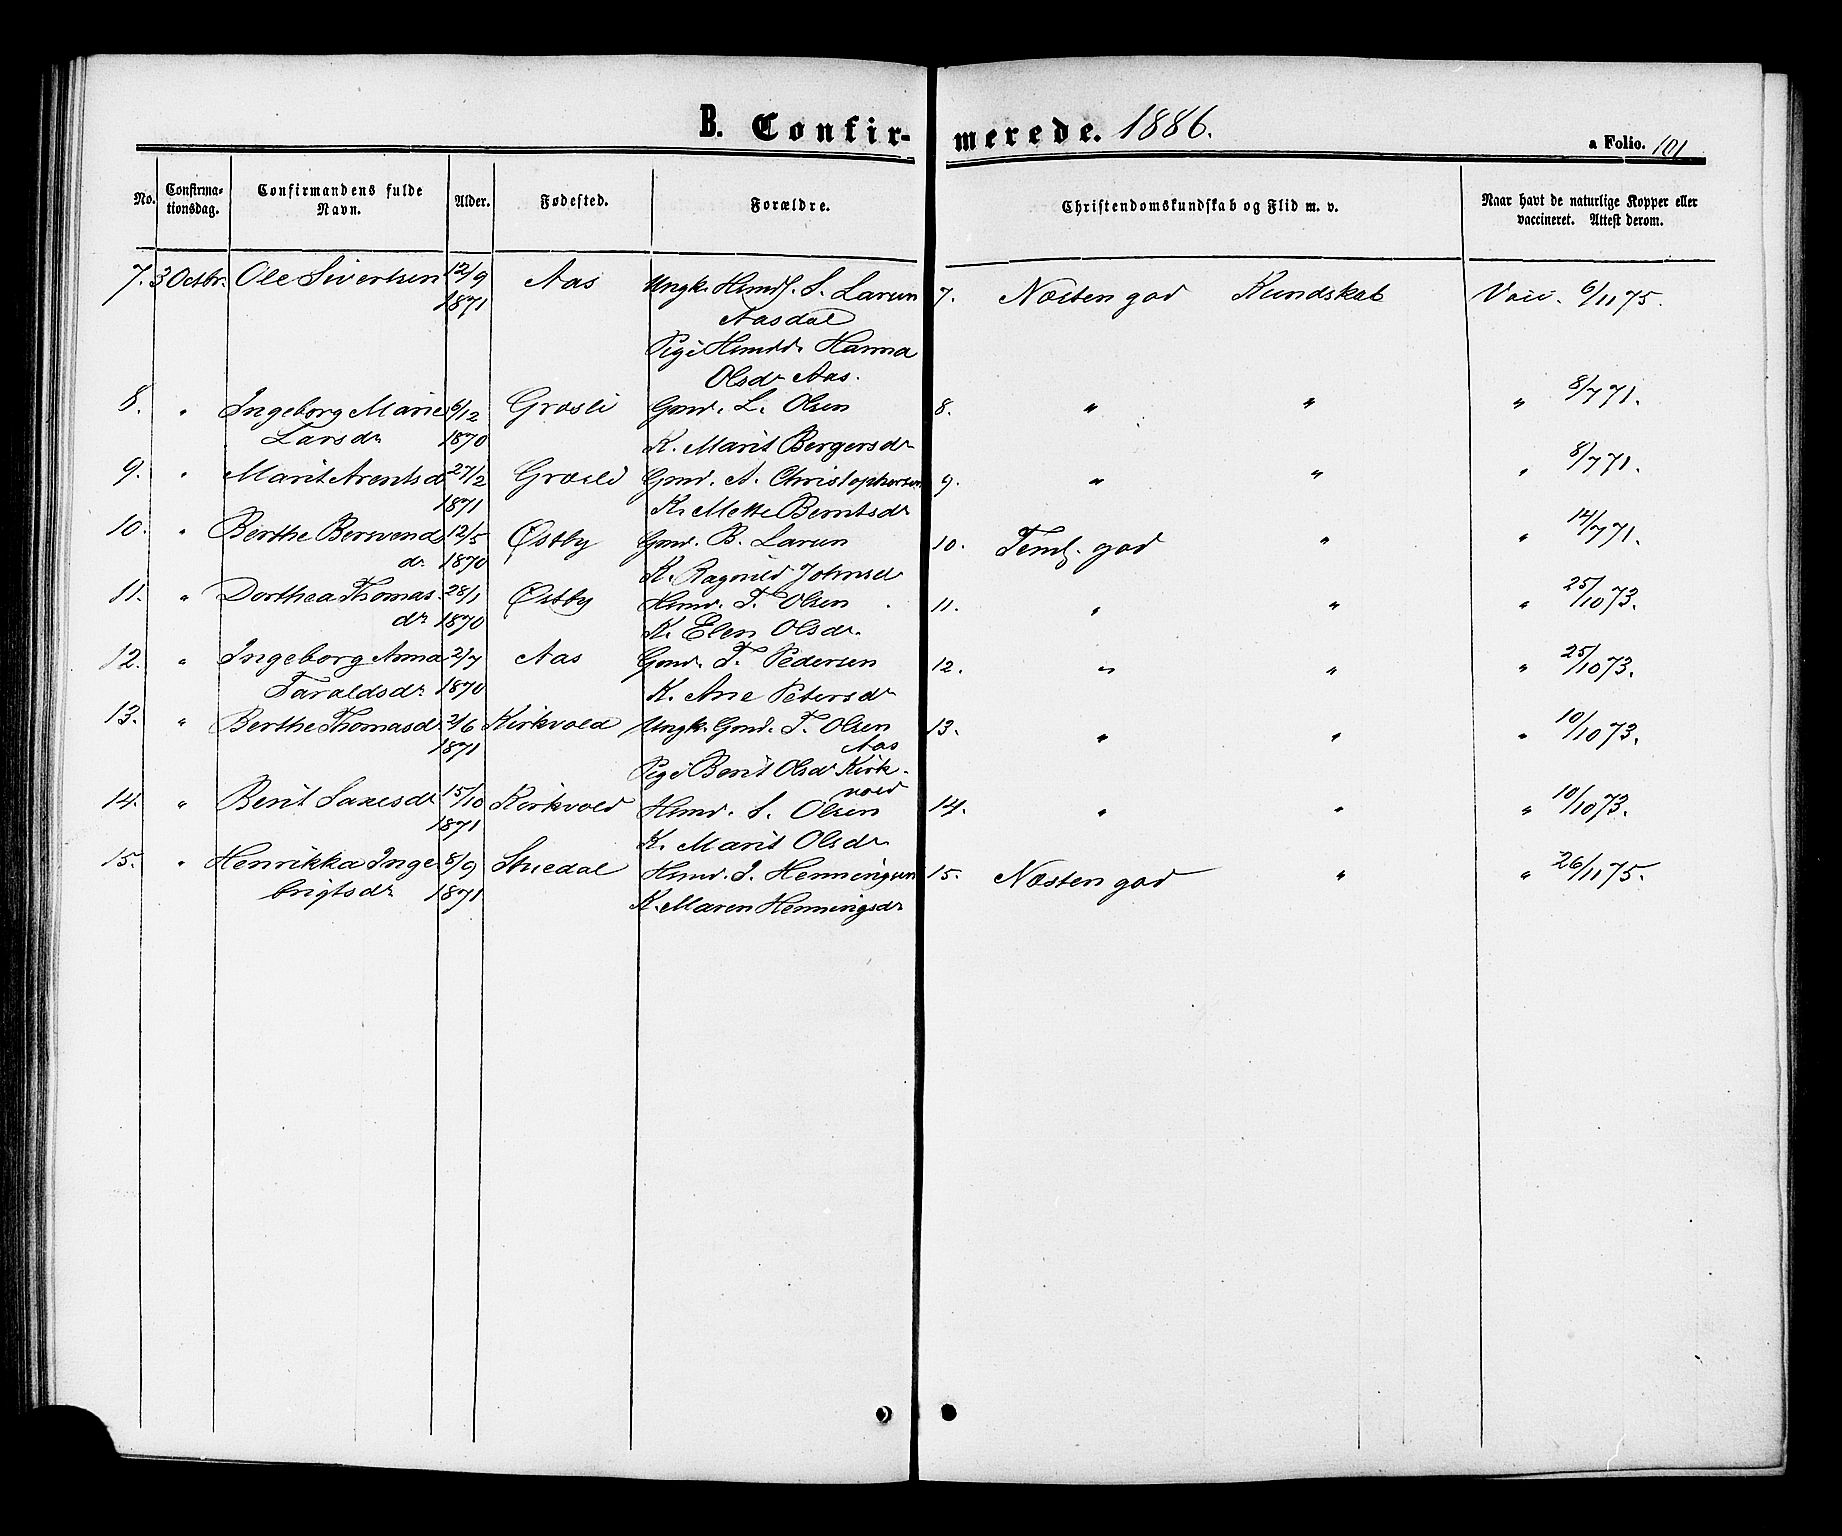 B. Confirmerede. 1886.
a Folio. 101
No. Confirmationsdag. Confirmandens fulde Navn. Alder. Fødested. Forældre. Christendomskundskab og Flid m. v. Naar havt de naturlige Kopper eller vaccineret. Attest derom.
7. 3 Octbr. Ole Sivertsen 12/9 Aas Ungk. S. Larsen 7. Næsten god Kundskab Vacc. 6/11 75.
1871 Aasdal
Pige Hanna
Olsdr Aas.
8. " Ingeborg Marie 6/12 Græsli Gmd. L. Olsen 8. " " " 8/7 71.
Larsdr 1870 K. Marit Bergersdr
9. " Marit Arentsd 27/2 Græsli Gmd. A. Christophersen 9. " " " 8/7 71.
1871 K. Mette Berntsdr
10. " Berthe Bersvend 12/5 Østby Gmd. B. Larsen 10. Teml. god " " 14/7 71.
dr 1870 K. Ragnild Johnsd
11. " Dorthea Thomas 28/1 Østby Hmd. T. Olsen 11. " " " 25/10 73.
dr 1870 K. Elen Olsdr.
12. " Ingeborg Anna 2/7 Aas Gmd. T. Pedersen 12. " " " 25/10 73.
Taraldsdr 1870 K. Ane Petersdr
13. " Berthe Thomasd. 2/6 Kirkvold Ungk. Gmd. T. Olsen 13. " " " 10/10 73.
1871 Aas
Pige Berit Olsdr Kirkvold
14. " Berit Saxesdr 15/10 Kirkvold Hmd. S. Olsen 14. " " " 10/10 73.
1871 K. Marit Olsdr
15. " Henrikka Inge 8/9 Stuedal Hmd. I. Henningsen 15. Næsten god " " 26/11 75.
brigtsdr 1871 K. Maren Henningsdr